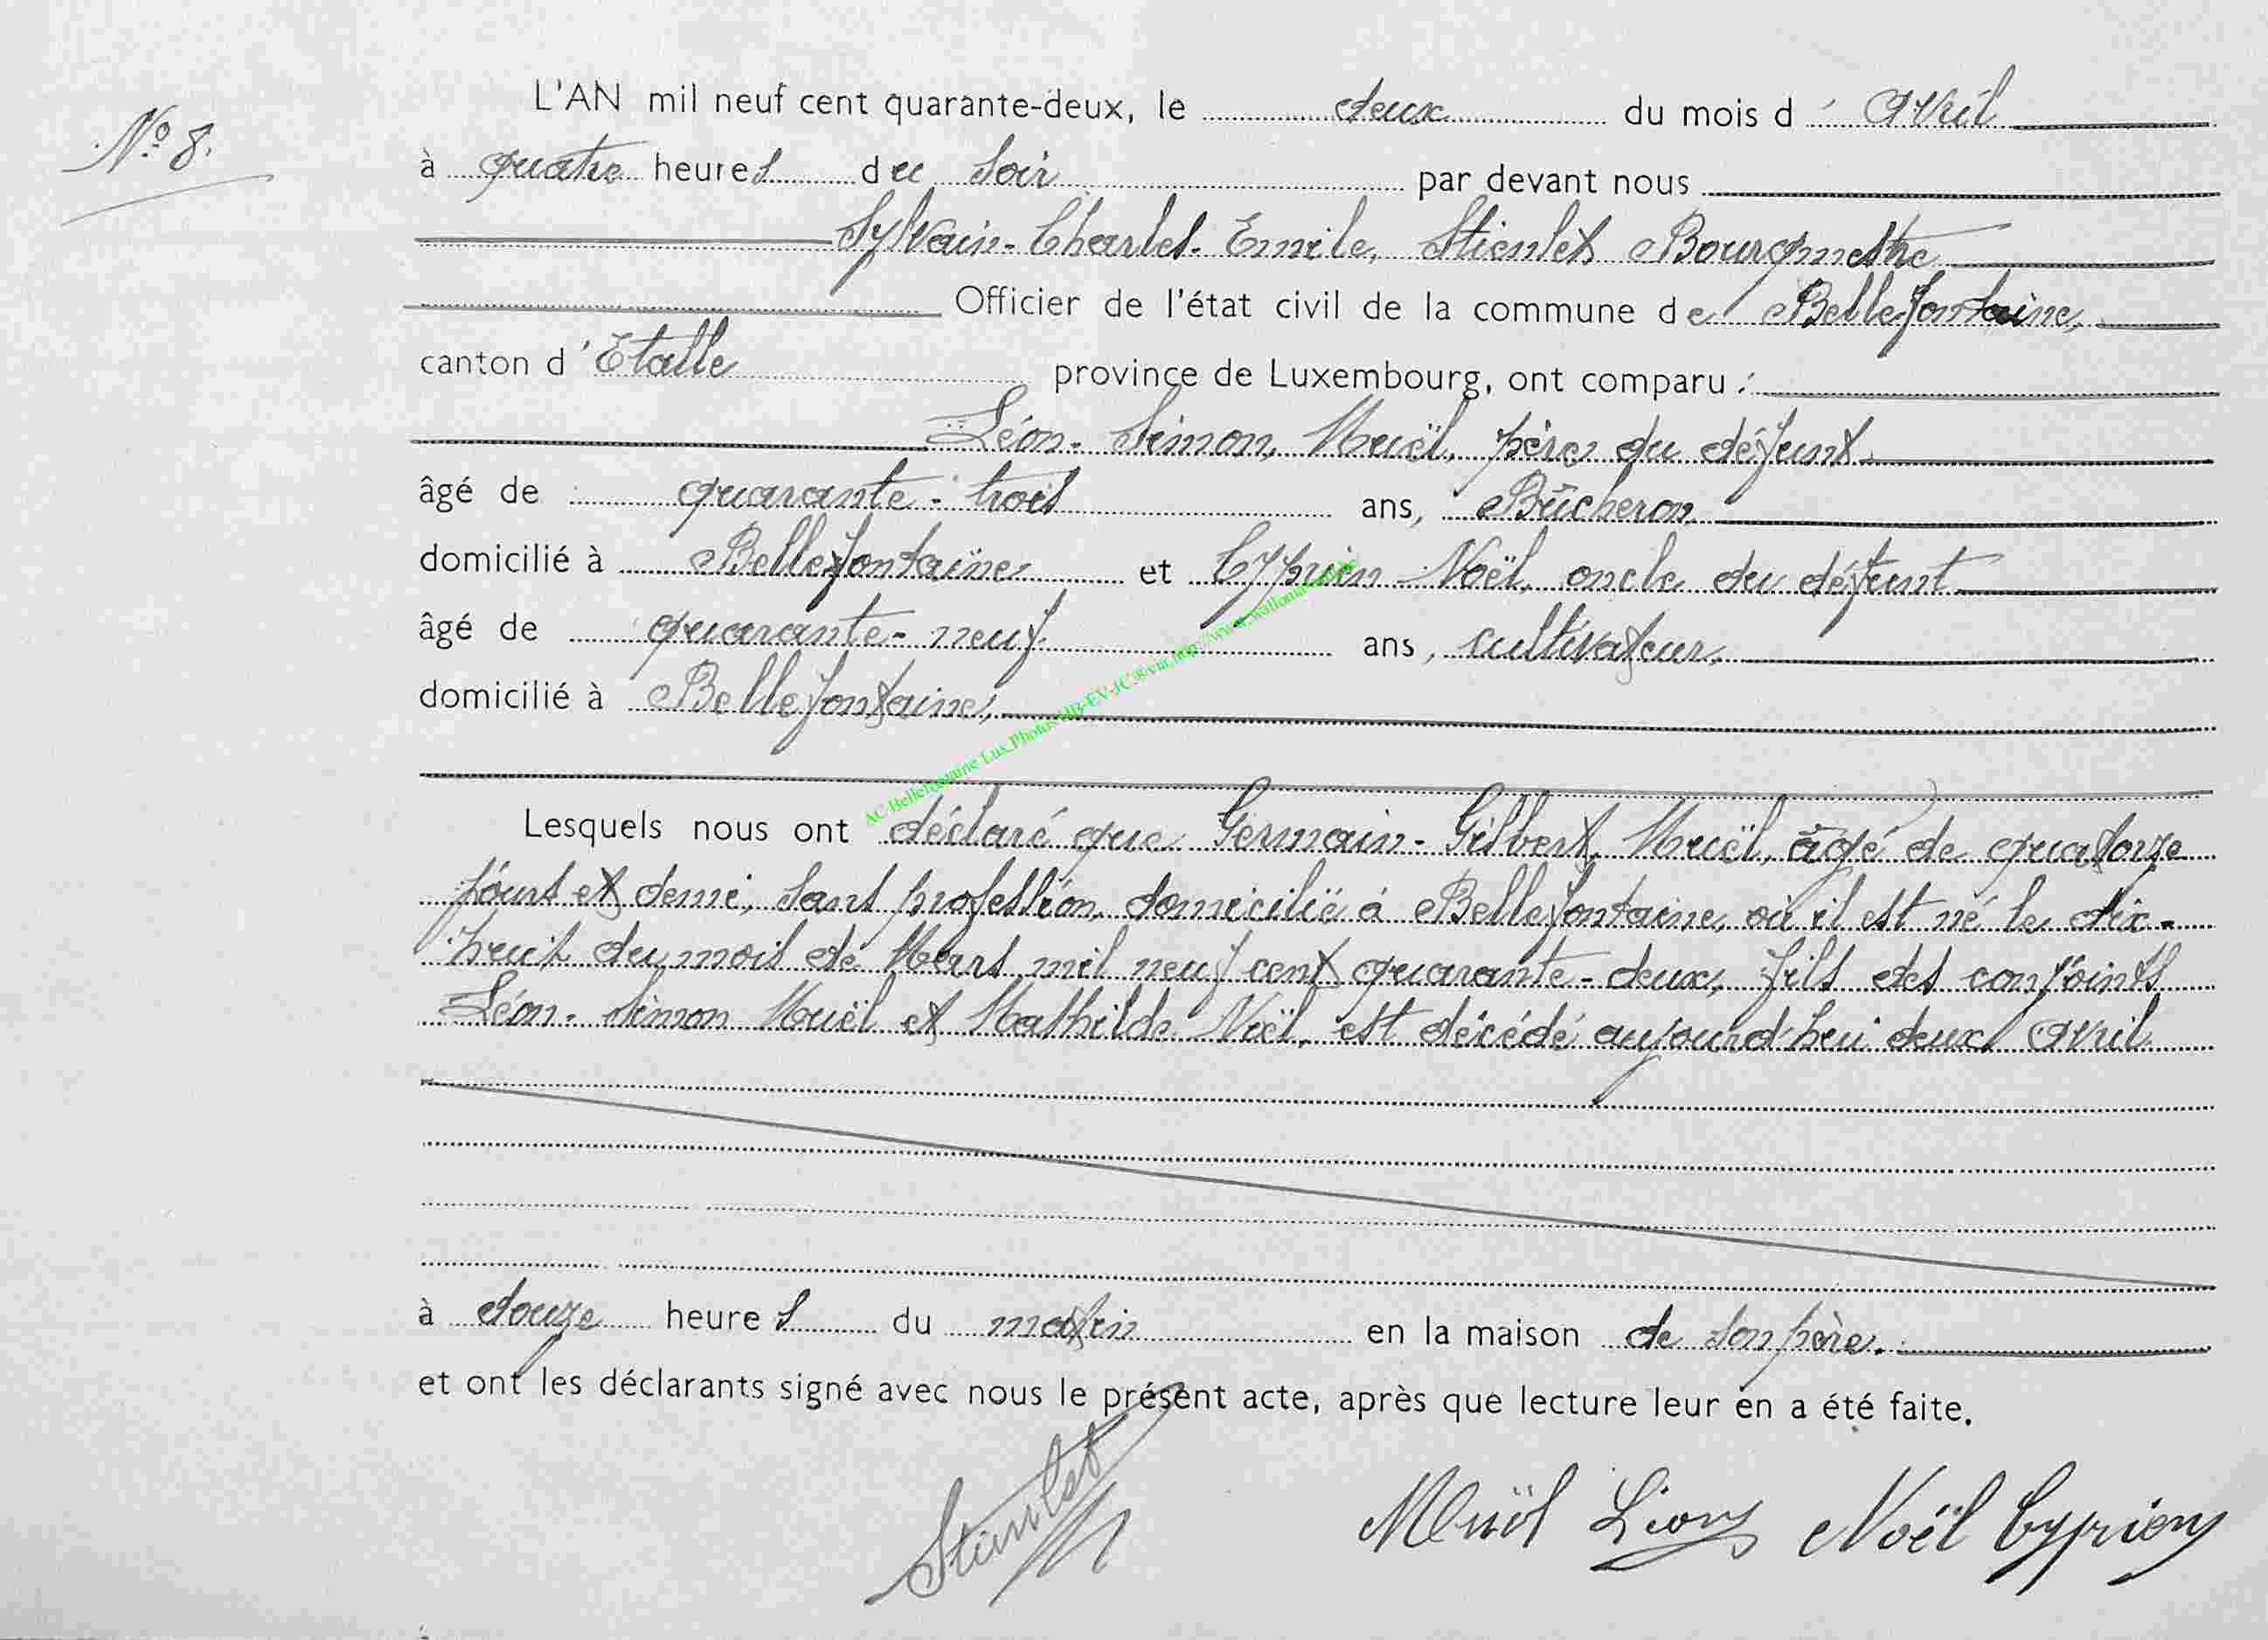 N° 8.
L'AN mil neuf cent quarante-deux, le deux du mois d' Avril
à quatre heures du soir par devant nous
Sylvain-Charles-Emile, Stienlet Bourgmestre
Officier de l'état civil de la commune de Bellefontaine,
canton d'Etalle province de Luxembourg, ont comparu :
Léon-Simon, Muël, père du défunt
âgé de quarante-trois ans, Bûcheron
domicilié à Bellefontaine et Cyprien Noël, oncle du défunt
âgé de quarante-neuf ans, cultivateur,
domicilié à Bellefontaine,
Lesquels nous ont déclaré que Germain-Gilbert, Muël, âgé de quatorze
jours et demi, sans profession, domicilié à Bellefontaine, où il est né le dix-
huit du mois de Mars mil neuf cent quarante-deux, fils des conjoints
Léon-Simon Muël et Mathilde Noël, est décédé aujourd'hui deux Avril
à douze heures du matin en la maison de son père.
et ont les déclarants signé avec nous le présent acte, après que lecture leur en a été faite.
Stienlet Muël Léon Noël Cyprien
AC Bellefontaine Lux Photos